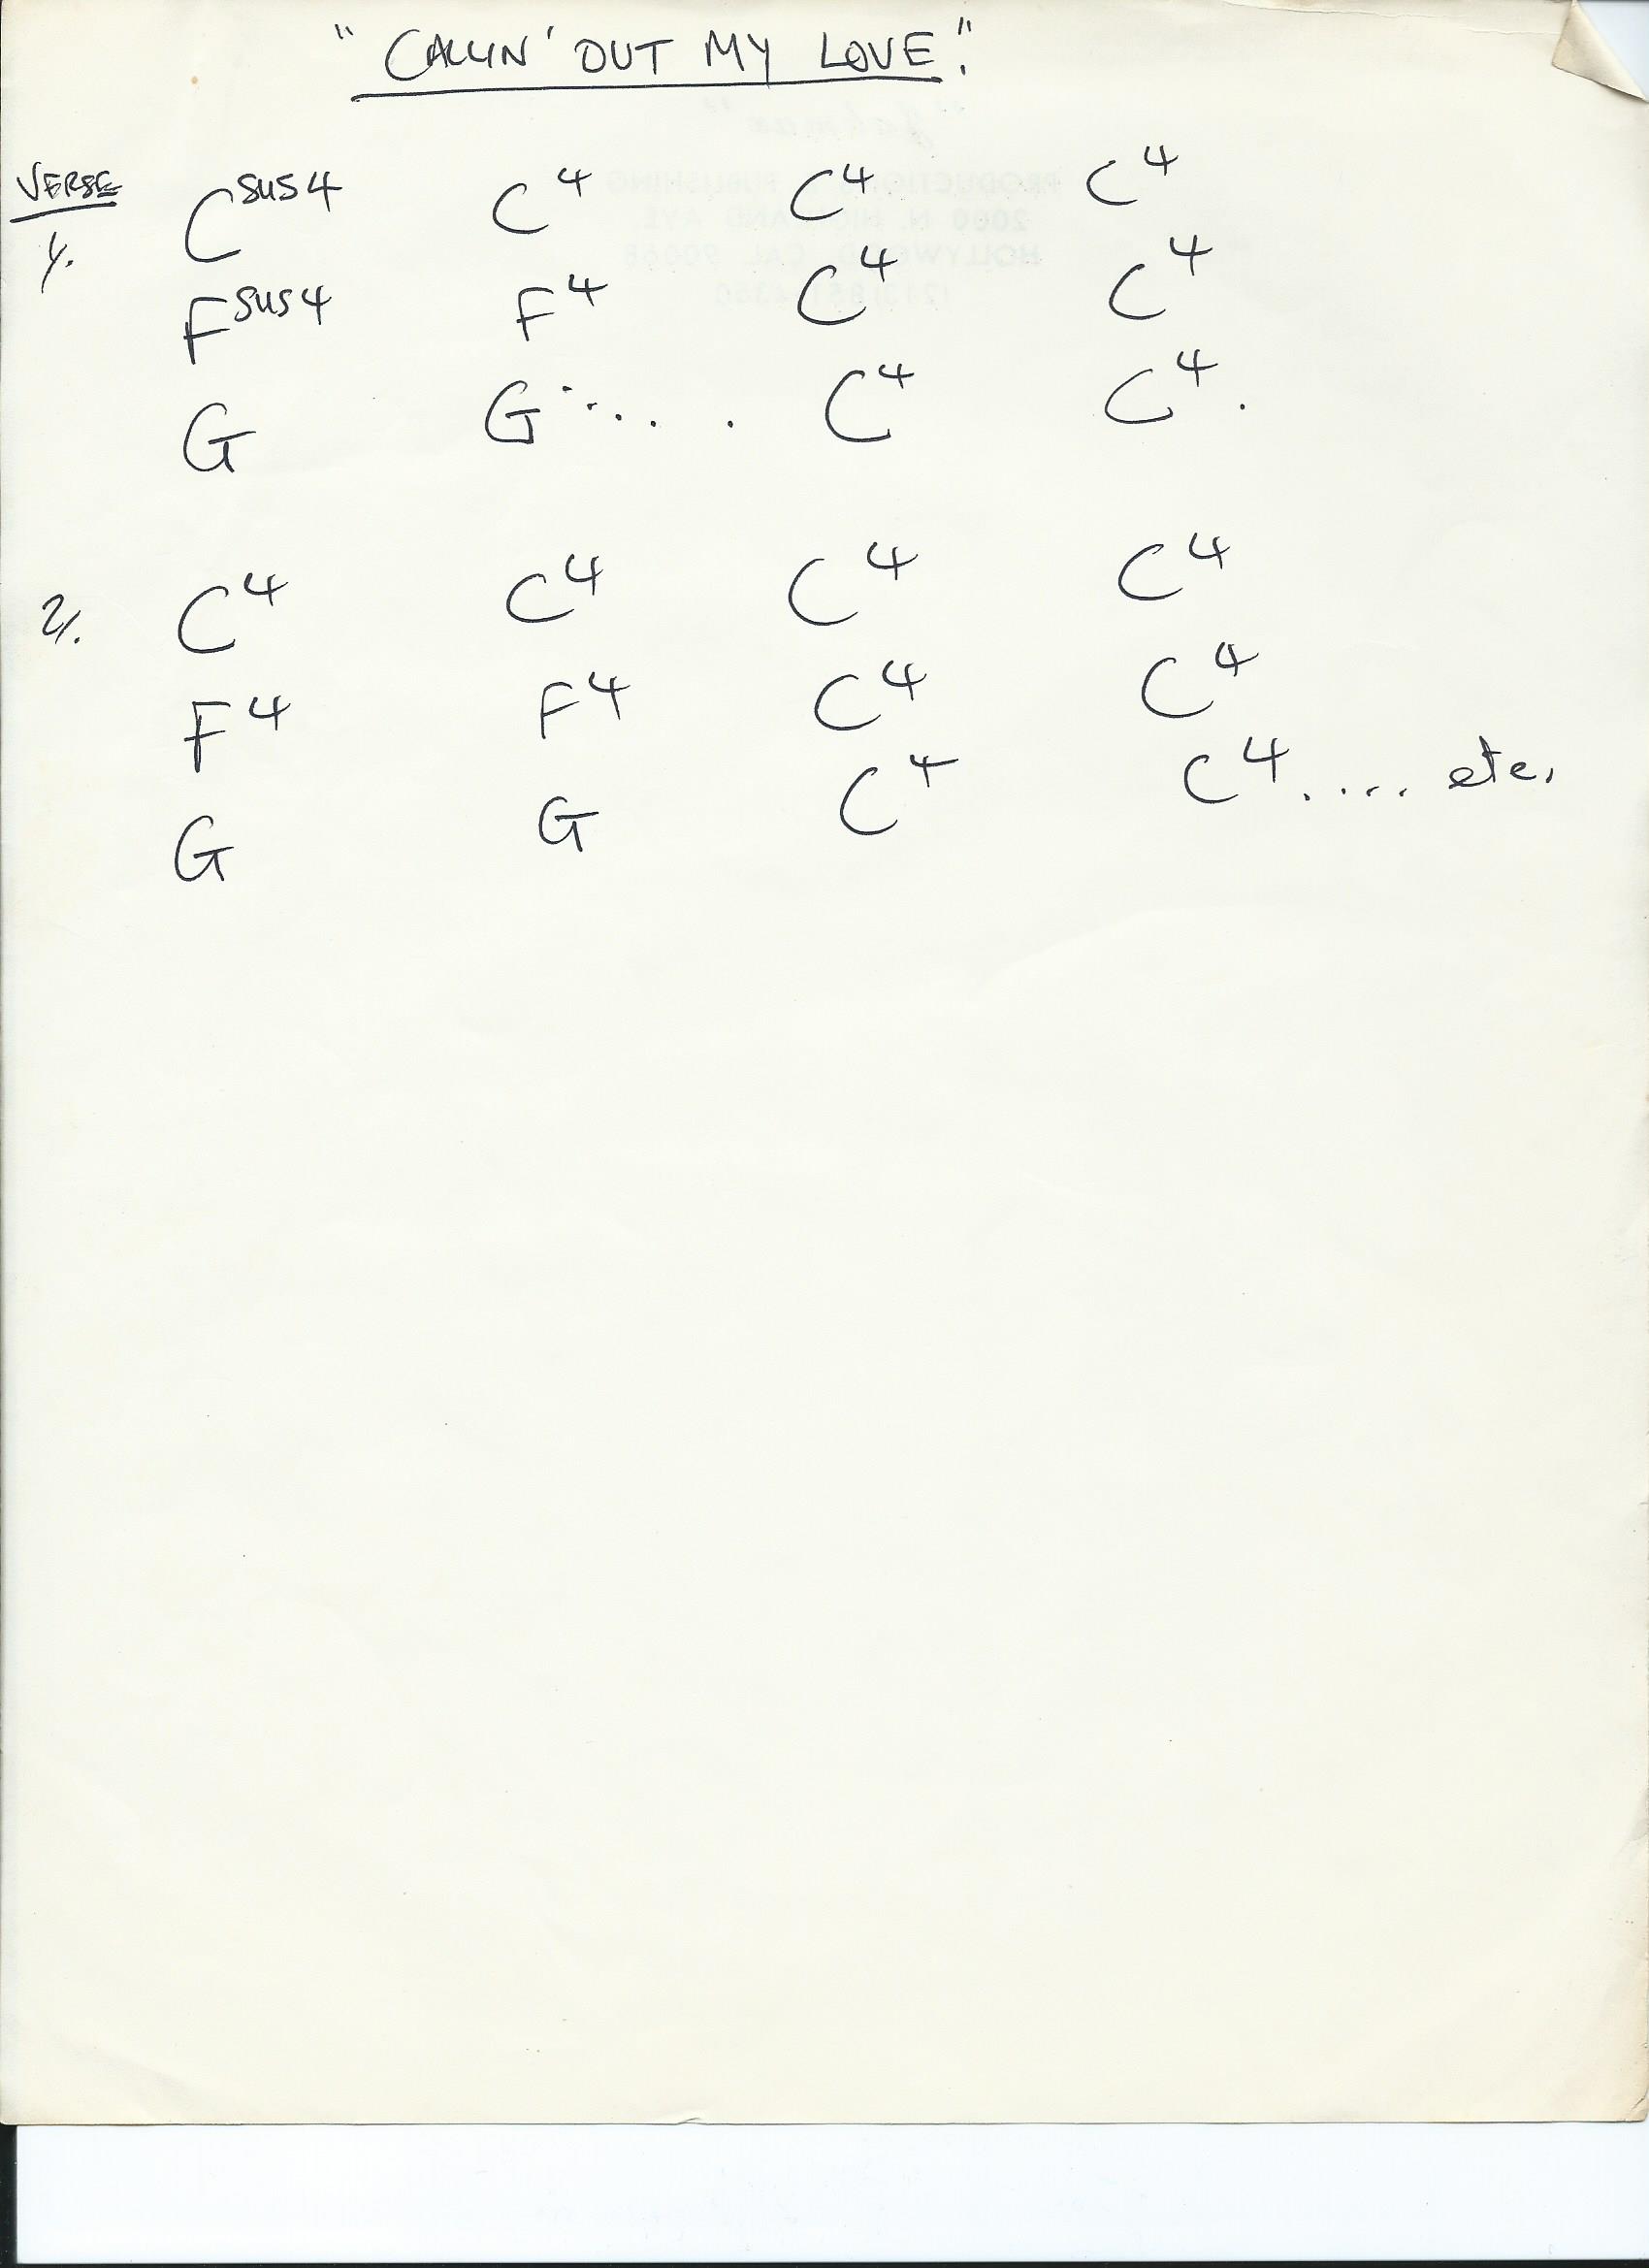 "CALLIN' OUT MY LOVE."
VERSE
1. Csus4 C4 C4 C4
Fsus4 F4 C4 C4
G G ..... C4 C4.
2. C4 C4 C4 C4
F4 F4 C4 C4
G G C4 C4 .... etc.